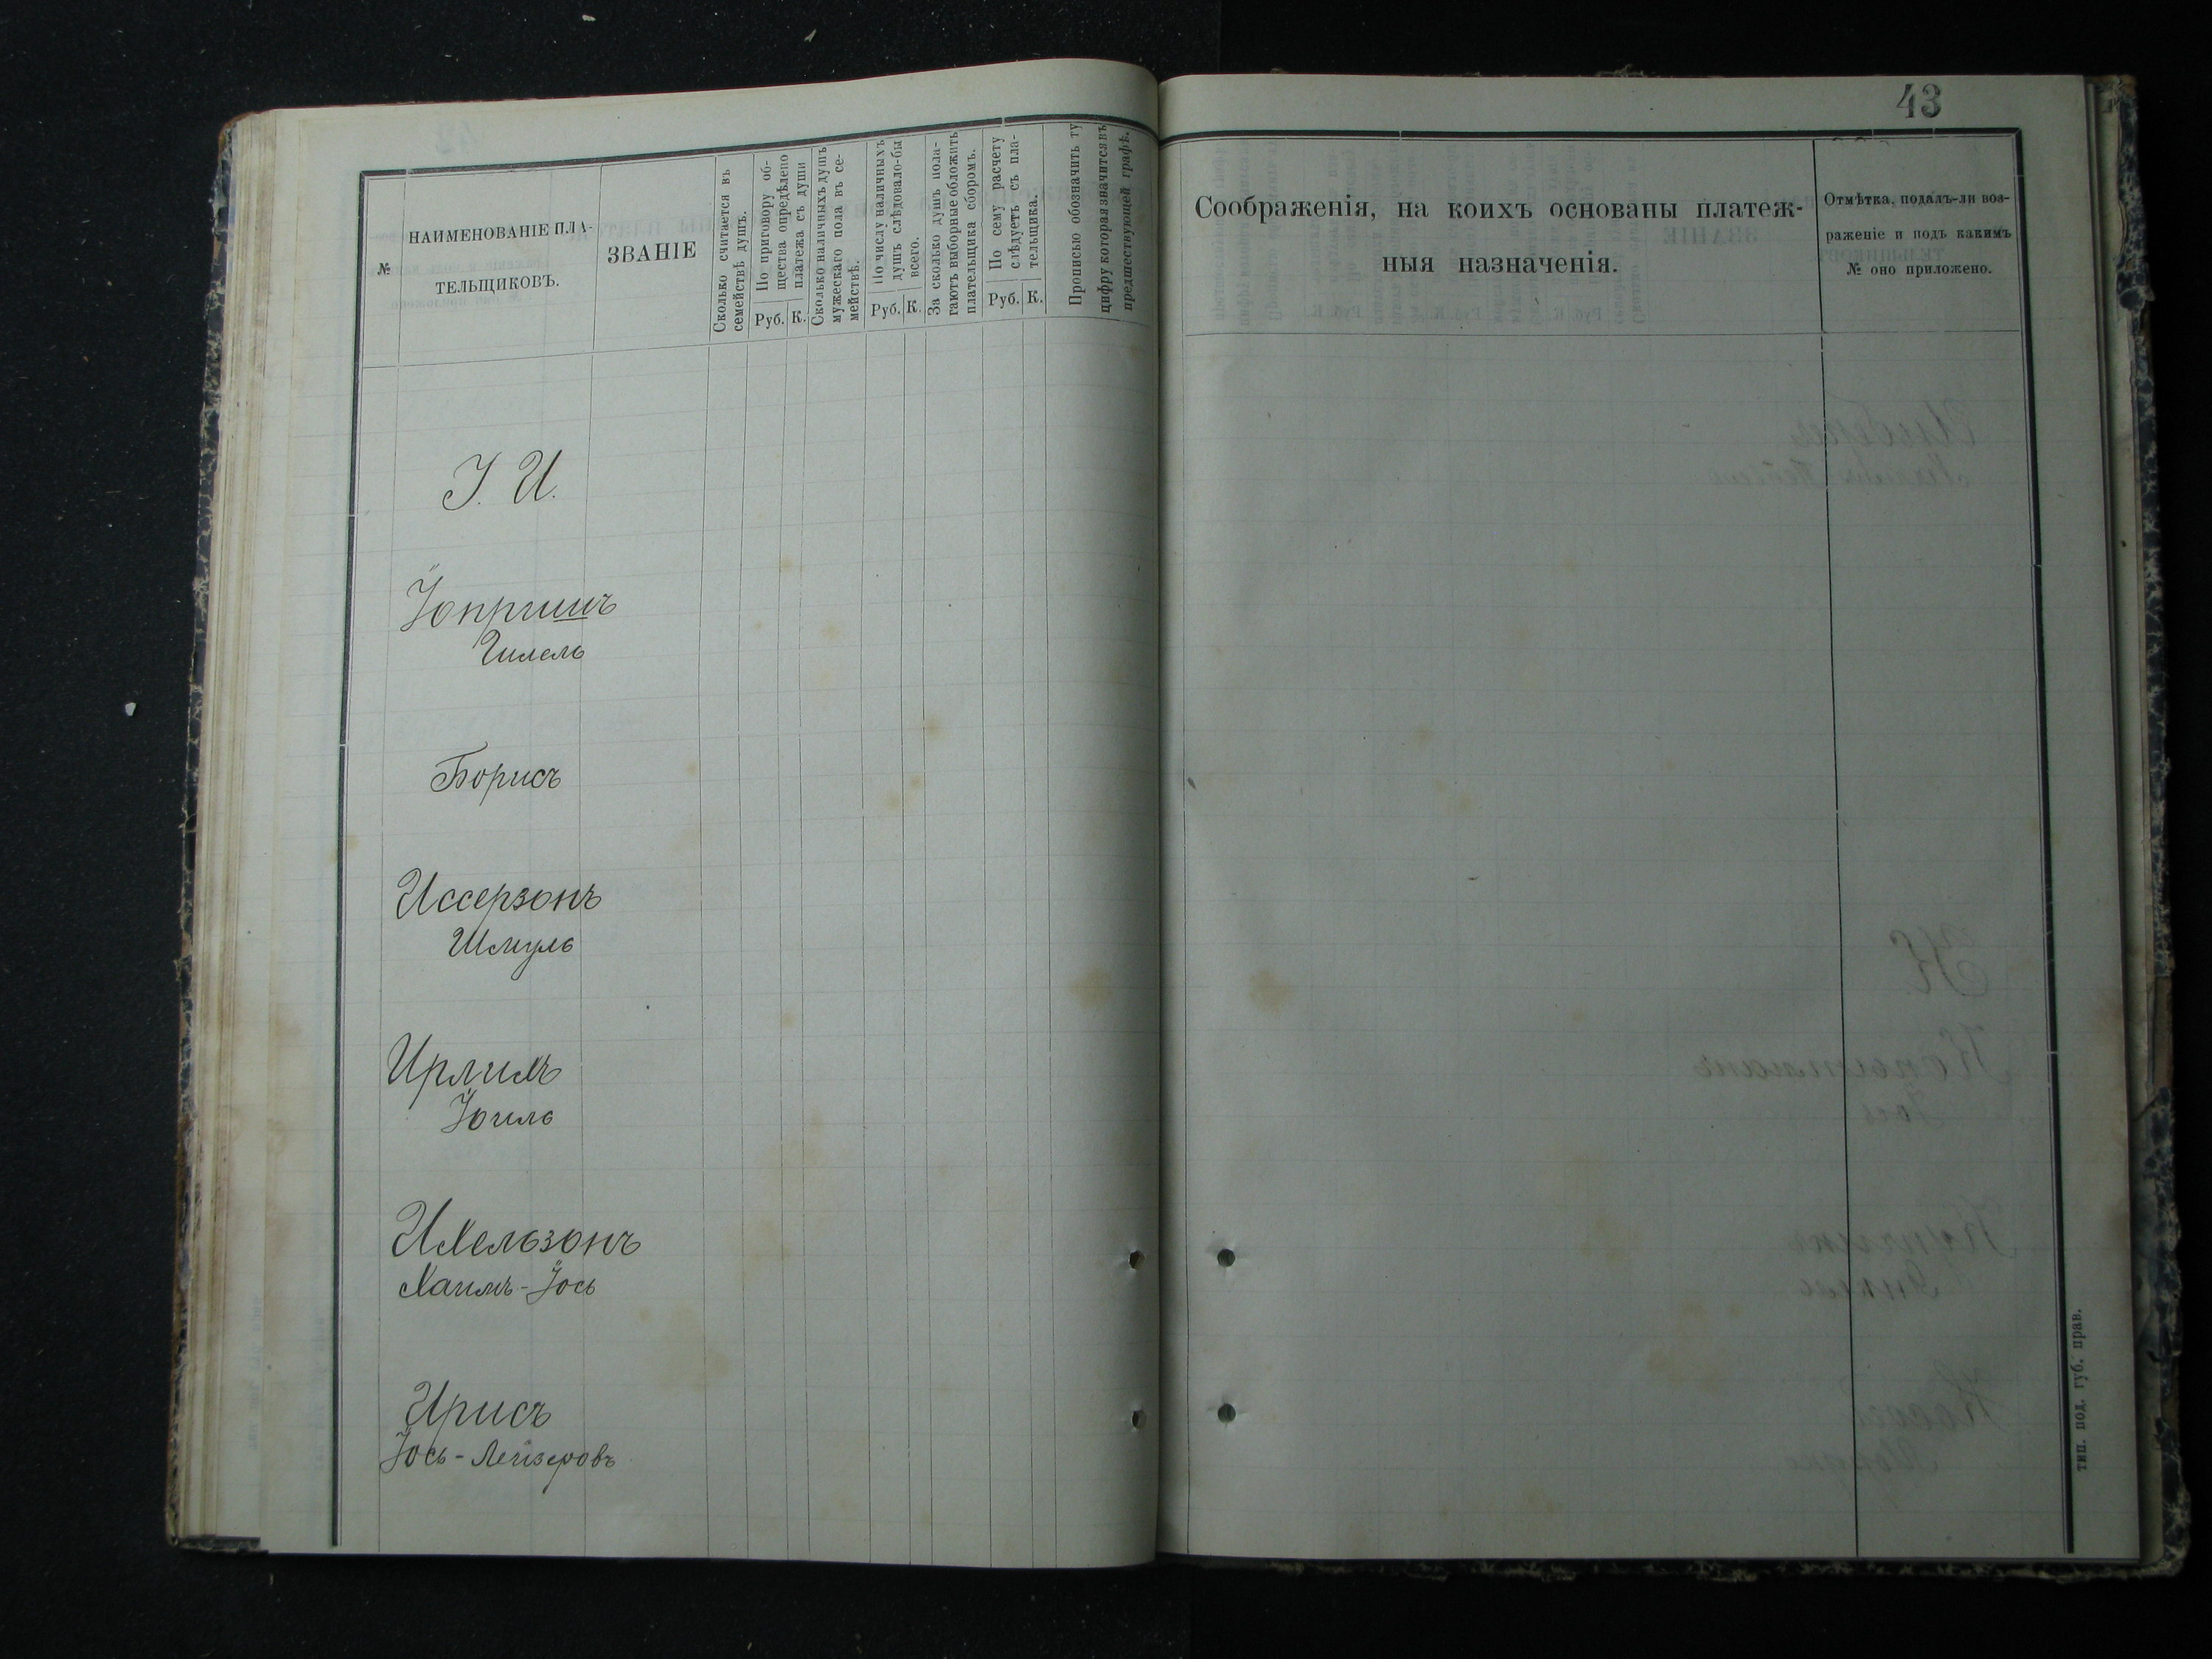 43
№
НАИМЕНОВАНІЕ ПЛА-
ТЕЛЬЩИКОВЪ.
ЗВАНІЕ
Сколько считается въ
семействѣ душъ.
По приговору об-
щества опредѣлено
платежа съ души
Руб. К.
Сколько наличныхъ душъ
мужескаго пола въ се-
мействѣ.
По числу наличныхъ
душъ слѣдовало-бы
всего.
Руб. К.
За сколько душъ пола-
гаютъ выборные обложить
плательщика сборомъ.
По сему расчету
слѣдуетъ съ пла-
тельщика.
Руб. К.
Прописью обозначить ту
цифру которая значится въ
предшествующей графѣ.
Соображенія, на коихъ основаны платеж-
ныя назначенія.
Отмѣтка, подалъ-ли воз-
раженіе и подъ какимъ
№ оно приложено.
І. И.
Гилель
Борисъ
Иссерзонъ
Шмуль
Ирлихъ
Іоиль
Ихельзонъ
Хаимъ-Іось
Ирисъ
Іось-Лейзеровъ
тип. под. губ. прав.